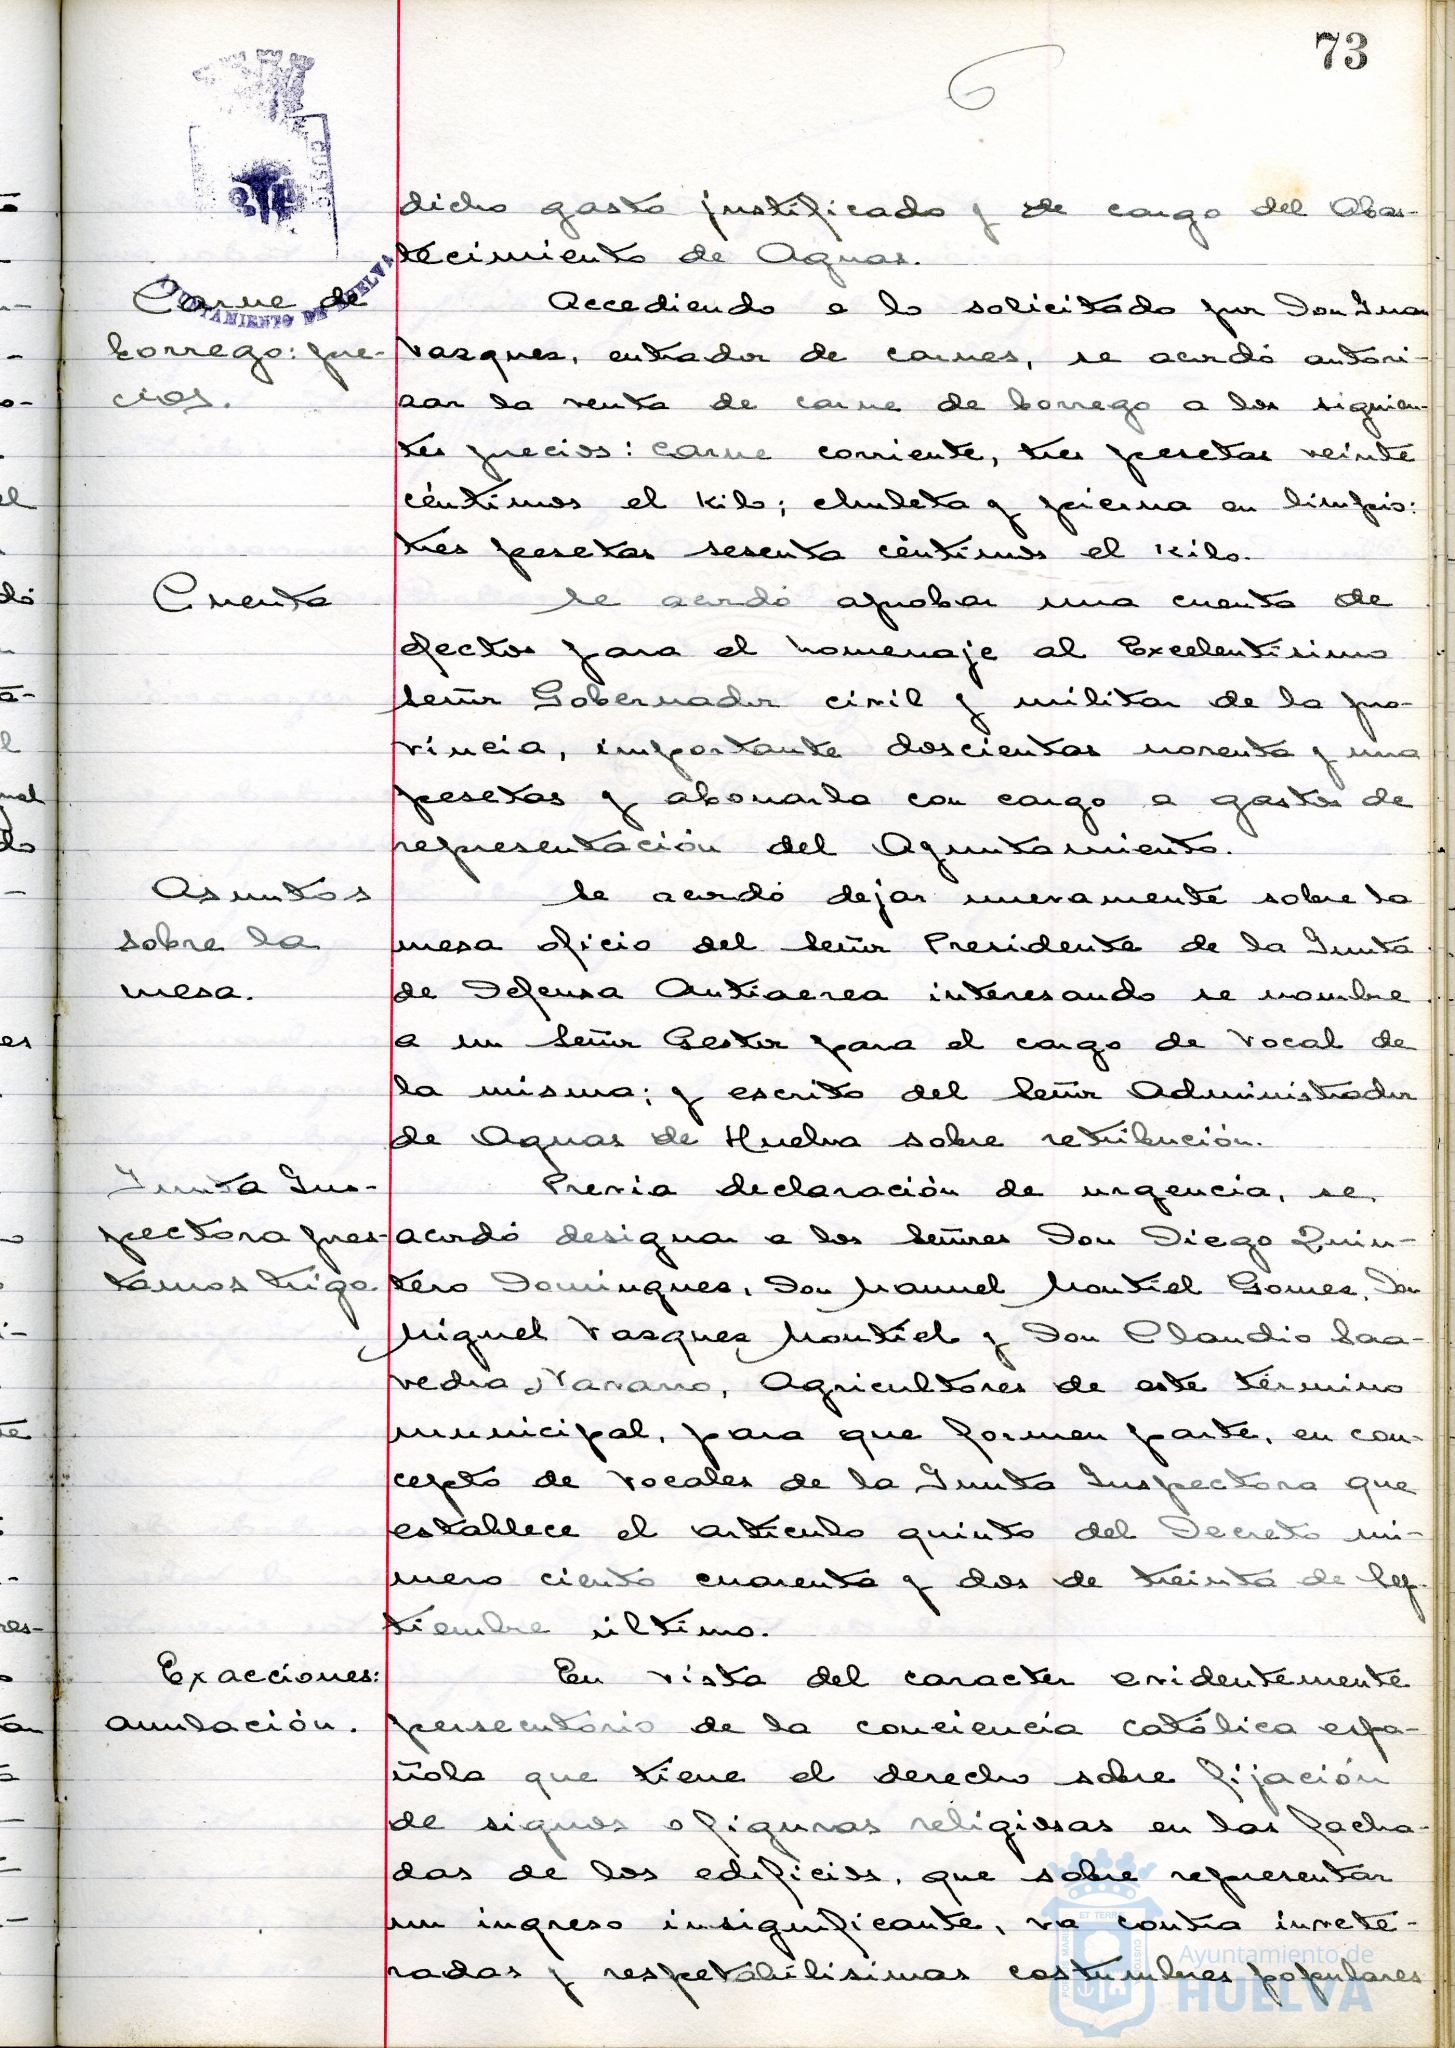 73
dicho gasto justificado y de cargo del Abas-
tecimiento de Aguas.
Carne de
borrego: pre-
cios.
Accediendo a lo solicitado por Don Juan
Vazquez, entrador de carnes, se acordó autori-
zar la venta de carne de borrego a los siguien-
tes precios: carne corriente, tres pesetas veinte
céntimos el kilo; chuleta y pierna en limpio:
tres pesetas sesenta céntimos el kilo.
Cuenta
Se acordó aprobar una cuenta de
efectos para el homenaje al Excelentísimo
Señor Gobernador civil y militar de la pro-
vincia, importante doscientas noventa y una
pesetas y abonarla con cargo a gastos de
representación del Ayuntamiento.
Asuntos
sobre la
mesa.
Se acordó dejar nuevamente sobre la
mesa oficio del Señor Presidente de la Junta
de Defensa Antiaerea interesando se nombre
a un Señor Gestor para el cargo de Vocal de
la misma; y escrito del Señor Administrador
de Aguas de Huelva sobre retribución.
Junta Ins-
pectora pres-
tamos trigo.
Previa declaración de urgencia, se
acordó designar a los Señores Don Diego Quin-
tero Dominguez, Don Manuel Montiel Gomez, Don
Miguel Vazquez Montiel y Don Claudio Saa-
vedra Navarro, Agricultores de este término
municipal, para que formen parte, en con-
cepto de Vocales de la Junta Inspectora que
establece el artículo quinto del Decreto nú-
mero ciento cuarenta y dos de treinta de Sep-
tiembre último.
Exacciones:
anulación.
En vista del caracter evidentemente
persecutorio de la conciencia católica espa-
ñola que tiene el derecho sobre fijación
de signos o figuras religiosas en las facha-
das de los edificios, que sobre representar
un ingreso insignificante, va contra invete-
radas y respetabilisimas costumbres populares
AYUNTAMIENTO DE HUELVA
Ayuntamiento de
HUELVA